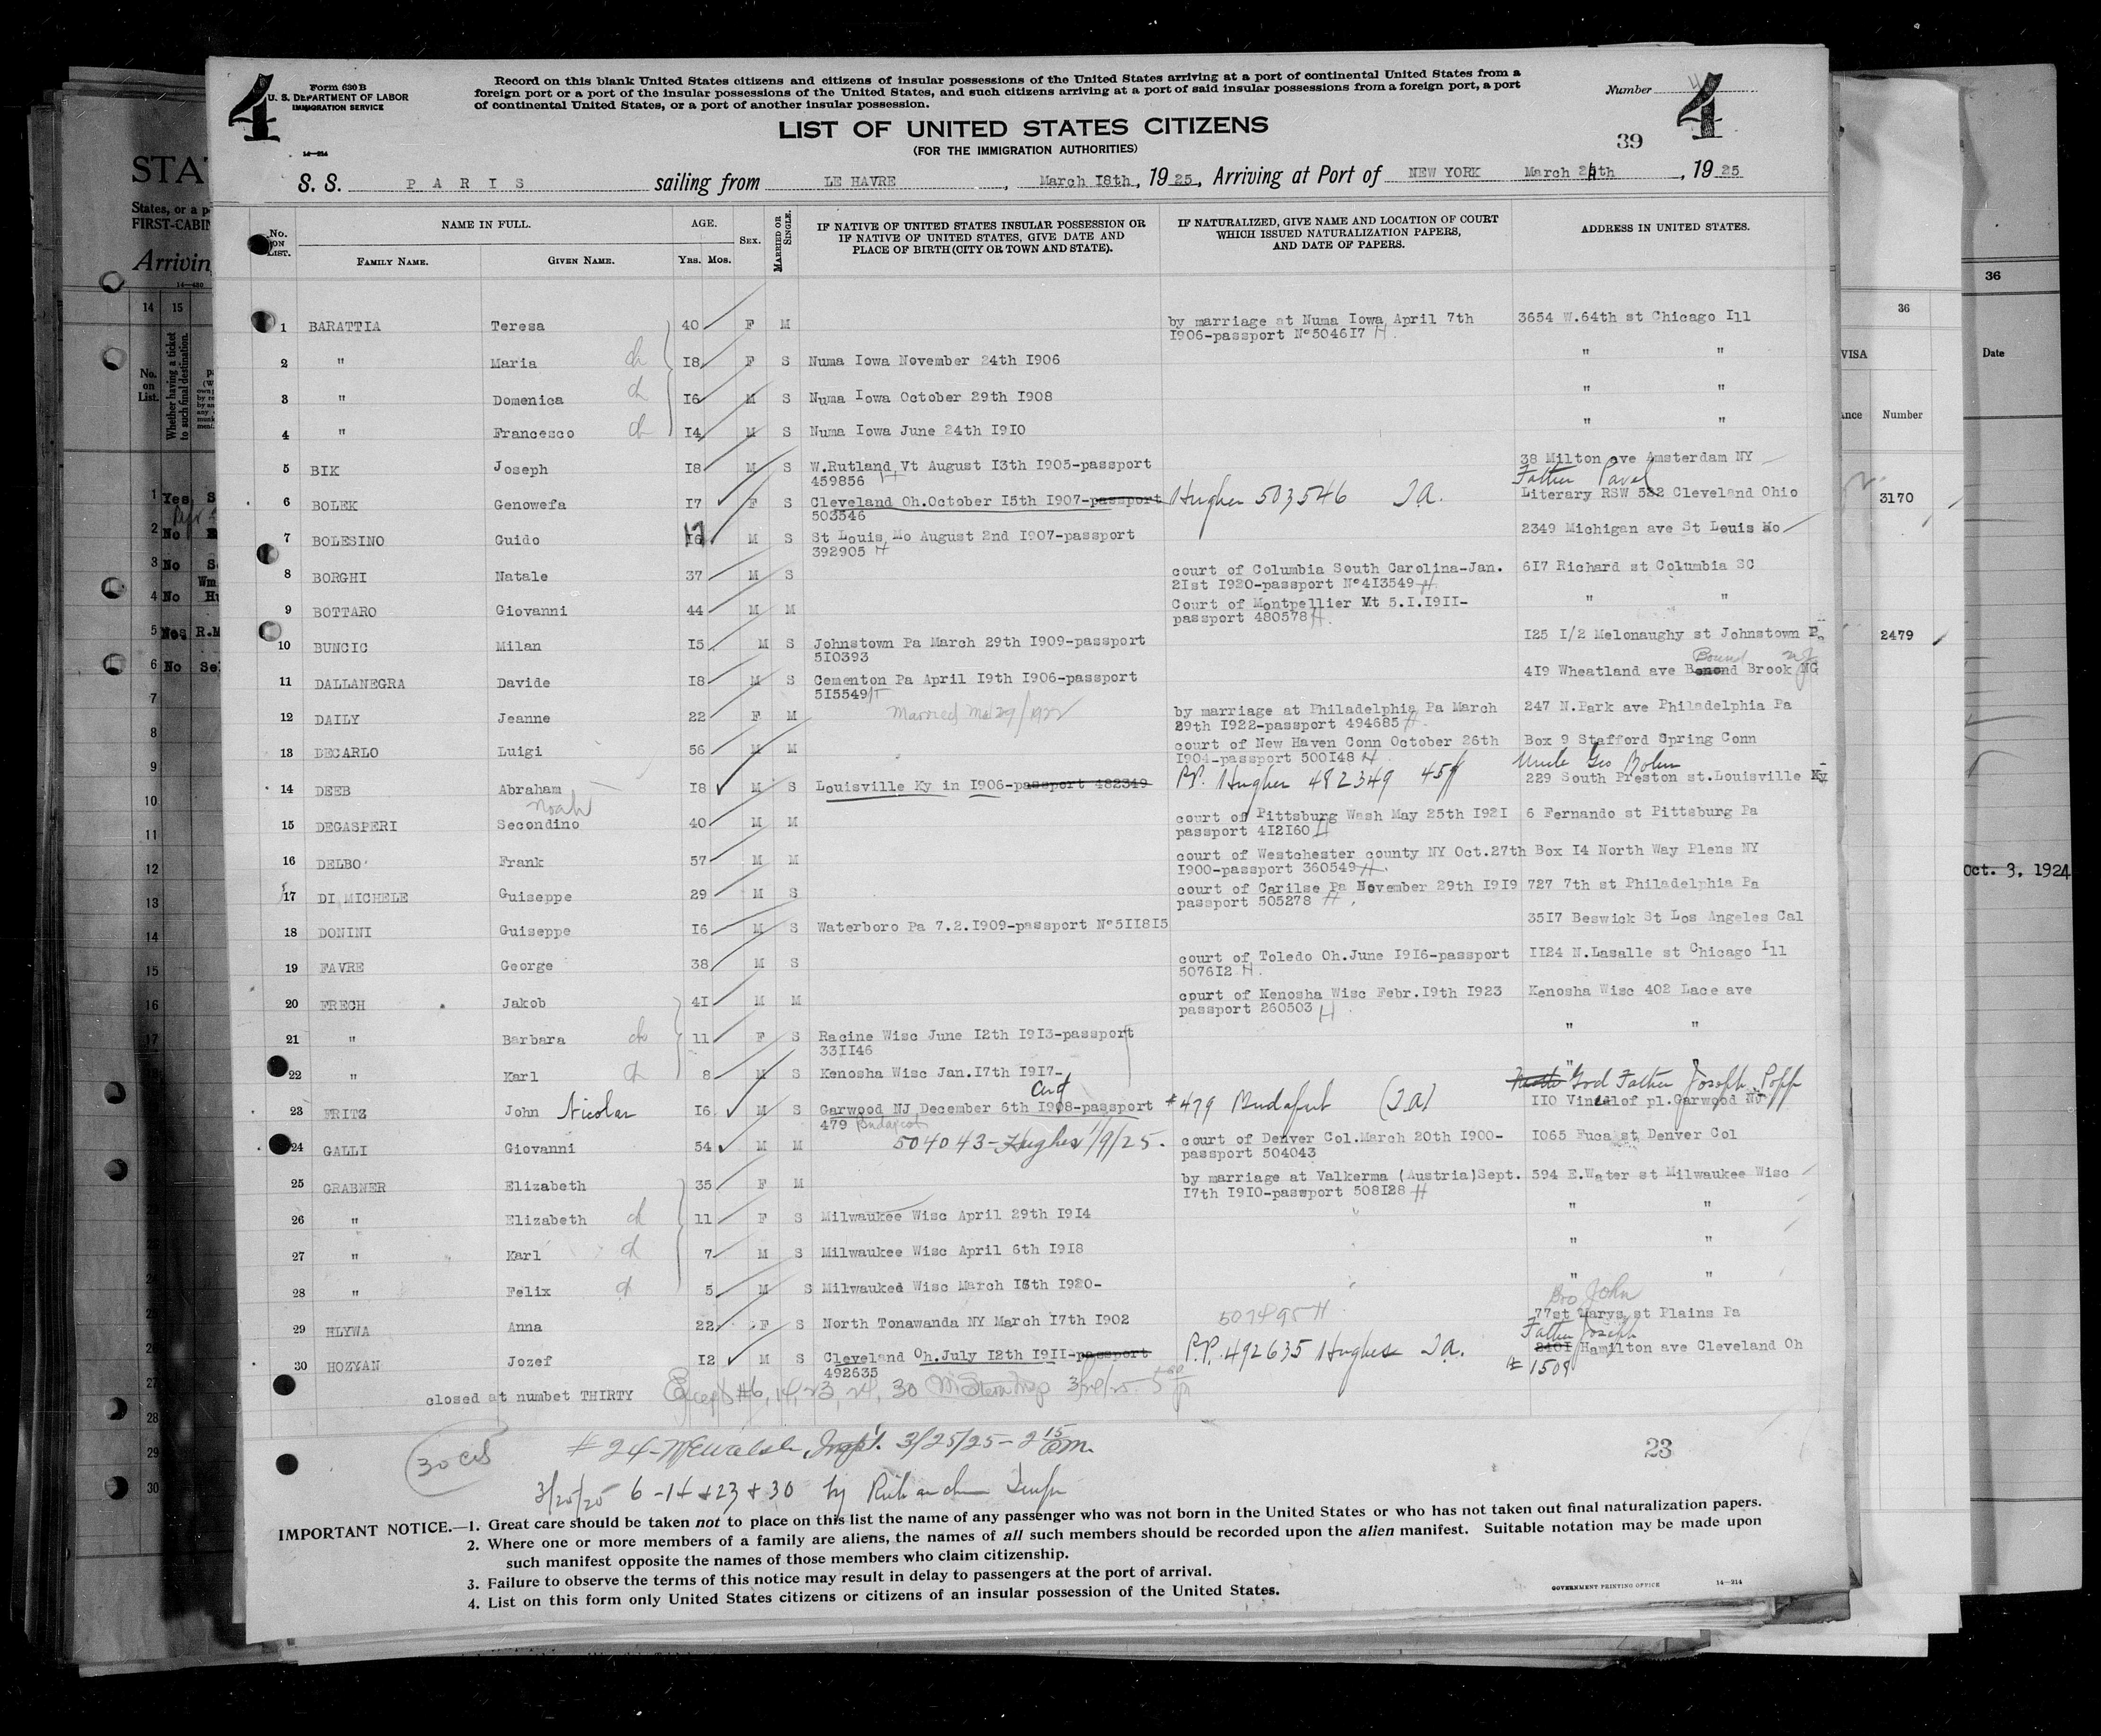 4
Form 630 B
U. S. DEPARTMENT OF LABOR
IMMIGRATION SERVICE
14-214
Record on this blank United States citizens and citizens of insular possessions of the United States arriving at a port of continental United States from a
foreign port or a port of the insular possessions of the United States, and such citizens arriving at a port of said insular possessions from a foreign port, a port
of continental United States, or a port of another insular possession.
Number 4
LIST OF UNITED STATES CITIZENS
(FOR THE IMMIGRATION AUTHORITIES)
39
S. S. PARIS sailing from LE HAVRE, March 18th, 1925, Arriving at Port of NEW YORK March 2 th, 1925
No. ON LIST. NAME IN FULL. FAMILY NAME. GIVEN NAME. AGE. Yrs. Mos. SEX. MARRIED OR SINGLE. IF NATIVE OF UNITED STATES INSULAR POSSESSION OR IF NATIVE OF UNITED STATES, GIVE DATE AND PLACE OF BIRTH (CITY OR TOWN AND STATE). IF NATURALIZED, GIVE NAME AND LOCATION OF COURT WHICH ISSUED NATURALIZATION PAPERS, AND DATE OF PAPERS. ADDRESS IN UNITED STATES.
1 BARATTIA Teresa 40 F M by marriage at Numa Iowa April 7th 3654 W.64th st Chicago Ill
I906-passport N°5046I7 H
2 " Maria ch I8 F S Numa Iowa November 24th I906 " "
3 " Domenica ch I6 M S Numa Iowa October 29th I908 " "
4 " Francesco ch I4 M S Numa Iowa June 24th I9I0 " "
5 BIK Joseph I8 M S W.Rutland Vt August I3th I905-passport 38 Milton ave Amsterdam NY
459856 H
Father Pavel
6 BOLEK Genowefa I7 F S Cleveland Oh.October I5th I907-passport Hughes 503546 I.A. Literary RSW 532 Cleveland Ohio
503546
7 BOLESINO Guido 17 M S St Louis Mo August 2nd I907-passport 2349 Michigan ave St Louis Mo
392905 H
8 BORGHI Natale 37 M S court of Columbia South Carolina-Jan. 6I7 Richard st Columbia SC
2Ist I920-passport N°4I3549 H
9 BOTTARO Giovanni 44 M M Court of Montpellier Vt 5.I.I9II- " "
passport 480578 H
10 BUNCIC Milan I5 M S Johnstown Pa March 29th I909-passport I25 I/2 Melonaughy st Johnstown P
5I0393
Bound NJ
11 DALLANEGRA Davide I8 M S Cementon Pa April I9th I906-passport 4I9 Wheatland ave Brook
5I5549 H
Married Mch 29/1922
12 DAILY Jeanne 22 F M by marriage at Philadelphia Pa March 247 N.Park ave Philadelphia Pa
29th I922-passport 494685 H
13 DECARLO Luigi 56 M M court of New Haven Conn October 26th Box 9 Stafford Spring Conn
I904-passport 500I48 H
Uncle Geo
14 DEEB Abraham I8 M S Louisville Ky in I906-passport 482349 P.P. Hughes 482349 229 South Preston st.Louisville Ky
Noah
15 DEGASPERI Secondino 40 M M court of Pittsburg Wash May 25th I92I 6 Fernando st Pittsburg Pa
passport 4I2I60 H
16 DELBO' Frank 57 M M court of Westchester county NY Oct.27th Box I4 North Way Plens NY
I900-passport 360549 H
17 DI MICHELE Guiseppe 29 M S court of Carilse Pa November 29th I9I9 727 7th st Philadelphia Pa
passport 505278 H
18 DONINI Guiseppe I6 M S Waterboro Pa 7.2.I909-passport N°5II8I5 35I7 Beswick St Los Angeles Cal
19 FAVRE George 38 M S court of Toledo Oh.June I9I6-passport II24 N.Lasalle st Chicago Ill
5076I2 H
20 FRECH Jakob 4I M M court of Kenosha Wisc Febr.I9th I923 Kenosha Wisc 402 Lace ave
passport 260503 H
21 " Barbara ch 11 F S Racine Wisc June I2th I9I3-passport " "
33II46
22 " Karl ch 8 M S Kenosha Wisc Jan.I7th I9I7- "
God Father Joseph Popp
23 FRITZ John Nicolas I6 M S Garwood NJ December 6th I908-passport #479 Budapest (I.A) II0 Vinellof pl.Garwood NJ
479 Budapest
24 GALLI Giovanni 54 M M 504043-Hughes 1/9/25. court of Denver Col.March 20th I900- I065 Fuca st Denver Col
passport 504043
25 GRABNER Elizabeth 35 F M by marriage at Valkerma (Austria)Sept. 594 E.Water st Milwaukee Wisc
I7th I9I0-passport 508I28 H
26 " Elizabeth ch 11 F S Milwaukee Wisc April 29th I9I4 " "
27 " Karl ch 7 M S Milwaukee Wisc April 6th I9I8 " "
28 " Felix ch 5 M S Milwaukee Wisc March I6th I920- " "
Bro John
29 HLYWA Anna 22 F S North Tonawanda NY March I7th I902 507495 H 77st Marys st Plains Pa
Father Joseph
30 HOZYAN Jozef I2 M S Cleveland Oh.July I2th I9II-passport P.P. 492635 Hughes I.A. 240I Hamilton ave Cleveland Oh
492635 # 1509
closed at numbet THIRTY Except #6, 14, 23, 24, 30 3/24/25
30 cits
#24- Walsh, Insp't. 3/25/25-2 15 P.M.
23
3/25/25 6-14 + 23 + 30 by
IMPORTANT NOTICE.—1. Great care should be taken not to place on this list the name of any passenger who was not born in the United States or who has not taken out final naturalization papers.
2. Where one or more members of a family are aliens, the names of all such members should be recorded upon the alien manifest. Suitable notation may be made upon
such manifest opposite the names of those members who claim citizenship.
3. Failure to observe the terms of this notice may result in delay to passengers at the port of arrival.
4. List on this form only United States citizens or citizens of an insular possession of the United States.
GOVERNMENT PRINTING OFFICE 14—214
STA
States, or a p
FIRST-CABIN
Arrivin
14—430
14 15
No. on List.
Whether having a ticket to such final destination.
1 Yes S
2 No
3 No S
Wm
4 No Hu
5 R.M
6 No Se
7
8
9
10
11
12
13
14
15
16
17
27
28
29
30
36
VISA
Number
3170
2479
36
Date
Oct. 3, 1924